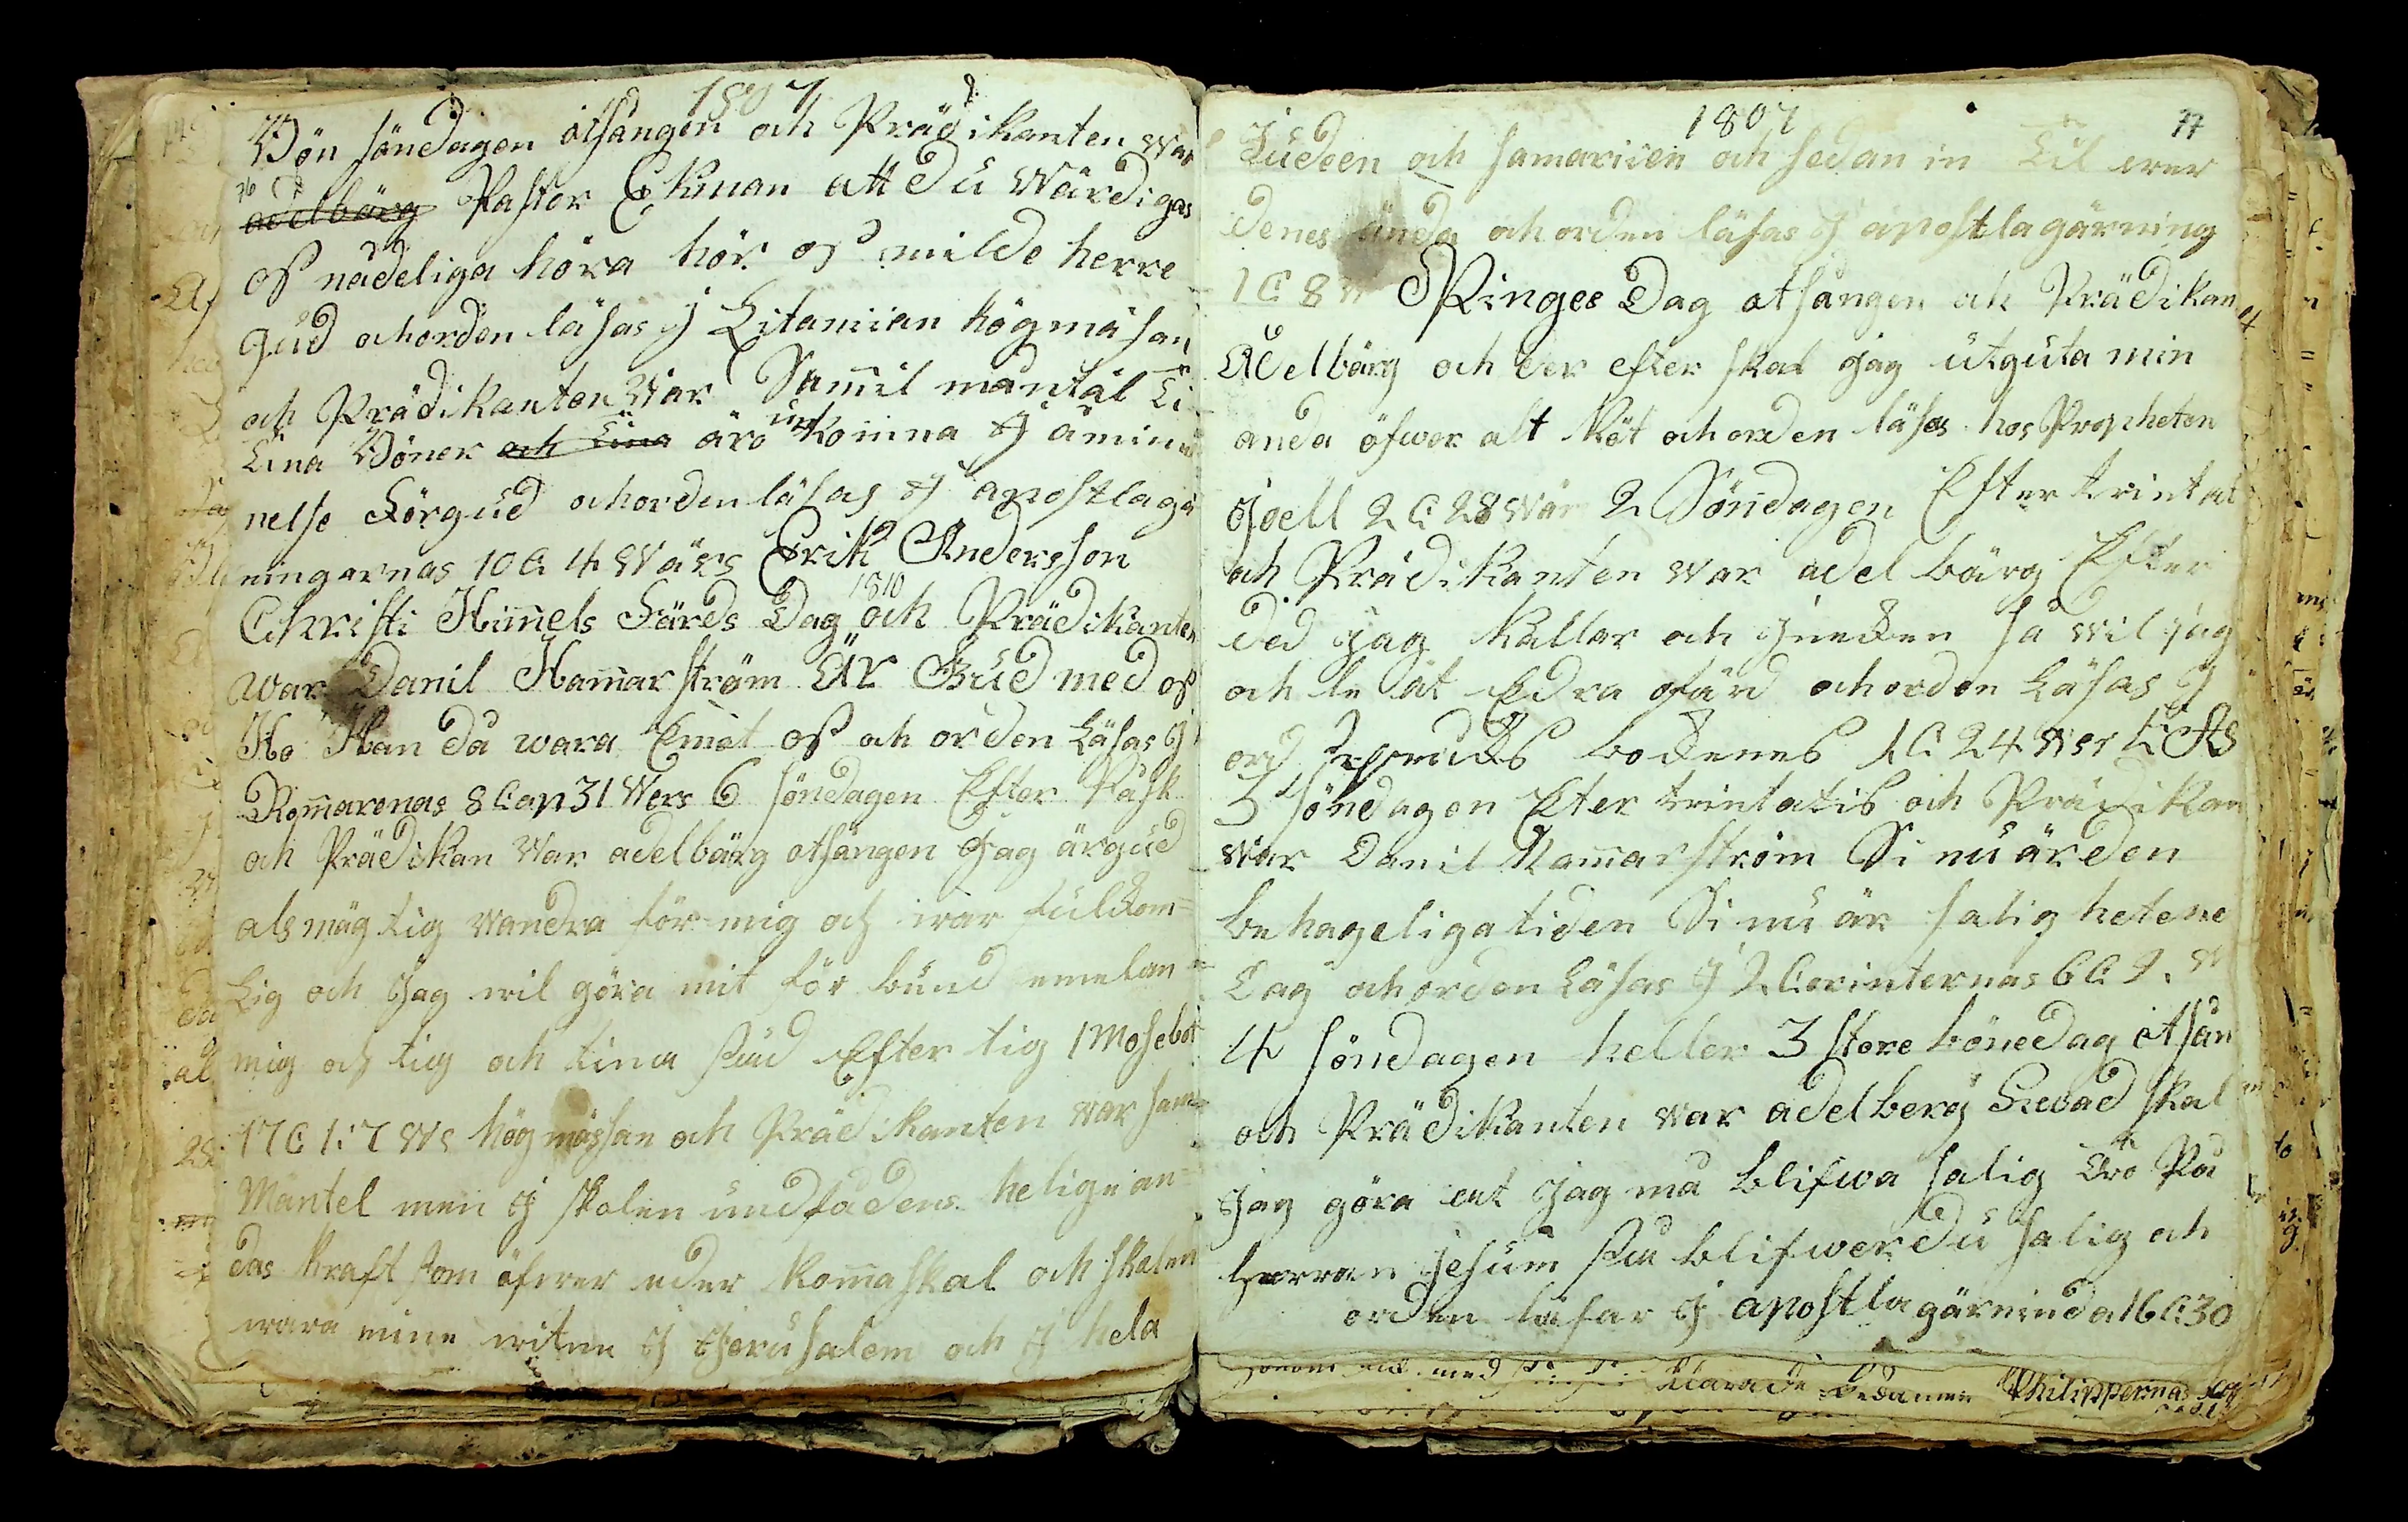 1807
Bön söndagen otsången och Prädikanten war
adelbärg Pastor Ekman att du wärdigas
oss nådeliga höra hör oss milde herre
gud och orden läsas J Litaniian högmäsan
och Prädikanten War Samil mäntäl
tina Böner och tina äro up komna J åmin
nelse för gud och orden läsas J apostlagä
ningarnas 10 C 4 Wärs Erik Andersson
1810
Christi Himels Färds Dag och Prädikanten
war Danil Hamarström Är Gud med oss
Ho Kan då wara Emot oss och orden Läsas J
Romarenas 8 Cap 31 Wers 6 söndagen Efter Påsk
och Prädikan War adelbärg otsången Jag är gud
als mägtig wandra för mig och war fulkom=
Lig och Jag wil göra mit för bund emelan
mig och tig och tina säd Efter tig 1 Mosebok
17 C 1: 7 WS högmässan och Prädikanten war sam
Mäntel men J skolen undfå dens helige an=
das kraft som öfwer eder koma skal och skolen
wara mine witne J Jerusalem och J hela
1807
77
Judeen och samariien och sedan in Til wer
denes ända och orden läsas J apostlagärning
1 C 8 W Pinges Dag otsången och Prädikan
Adelbärg och der efter skal jag utguta min
anda öfwer alt Köt och orden läsas hos Propheten
Joell 2 C 28 Wär 2 Söndagen Efter trintat
och Prädikanten war adelbärg Efter
ded jag kallar och J neken så wil jag
och le åt Edra ofärd och orden Läsas J
ord bokenes 1 C 24 Wer
3 söndagen Eter trintatis och Prädikan
war Danil Hamarström Si nu är den
behageliga tiden Si nu är salig hetene
Dag och orden Läsas J 2 Corinternas 6 C 2. W
4 söndagen heller 3 store bönedag otsån
och Prädikanten war adelberg Hwad skal
Jag göra at Jag må blifwa salig Tro På
herran jesum så blifwer du salig och
orden läsar J apostlagärninda 16 C 30
med klarade Philippernas